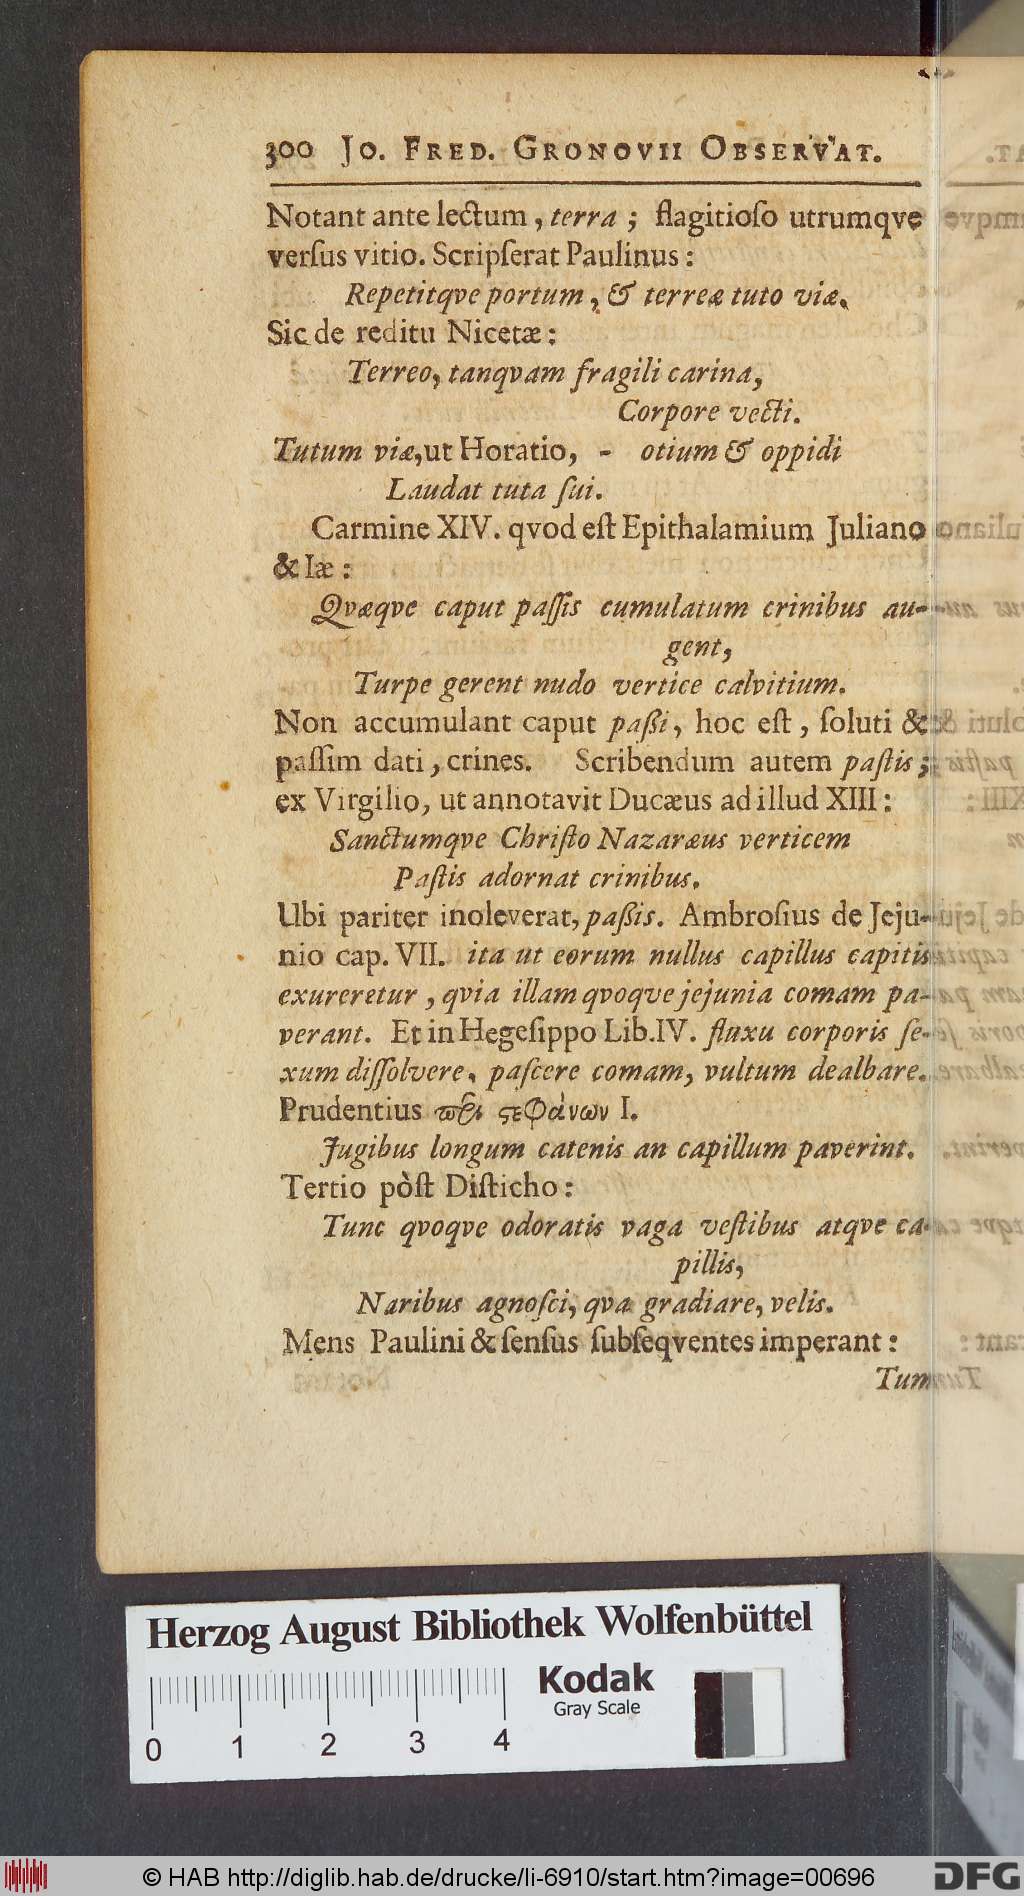 300 Jo. Fred. Gronovii Observat.
Notant ante lectum, terra; flagitioſo utrumqve
verſus vitio. Scripſerat Paulinus:
Repetitqve portum, & terreæ tuto viæ.
Sic de reditu Nicetæ:
Terreo, tanqvam fragili carina,
Corpore vecti.
Tutum viæ, ut Horatio, - otium & oppidi
Laudat tuta ſui.
Carmine XIV. qvod eſt Epithalamium Juliano
& Iæ:
Qvæqve caput paſſis cumulatum crinibus au-
gent,
Turpe gerent nudo vertice calvitium.
Non accumulant caput paßi, hoc eſt, ſoluti &
paſſim dati, crines. Scribendum autem paſtis;
ex Virgilio, ut annotavit Ducæus ad illud XIII:
Sanctumqve Chriſto Nazaræus verticem
Paſtis adornat crinibus.
Ubi pariter inoleverat, paßis. Ambroſius de Jeju-
nio cap. VII. ita ut eorum nullus capillus capitis
exureretur, qvia illam qvoqve jejunia comam pa-
verant. Et in Hegeſippo Lib. IV. fluxu corporis ſe-
xum diſſolvere, paſcere comam, vultum dealbare.
Prudentius ϖεὶ ϛεφάνων I.
Jugibus longum catenis an capillum paverint.
Tertio pòſt Diſticho:
Tunc qvoqve odoratis vaga veſtibus atqve ca-
pillis,
Naribus agnoſci, qva gradiare, velis.
Mens Paulini & ſenſus ſubſeqventes imperant:
Tum
Herzog August Bibliothek Wolfenbüttel
Kodak
Gray Scale
0 1 2 3 4
© HAB http://diglib.hab.de/drucke/li-6910/start.htm?image=00696
DFG